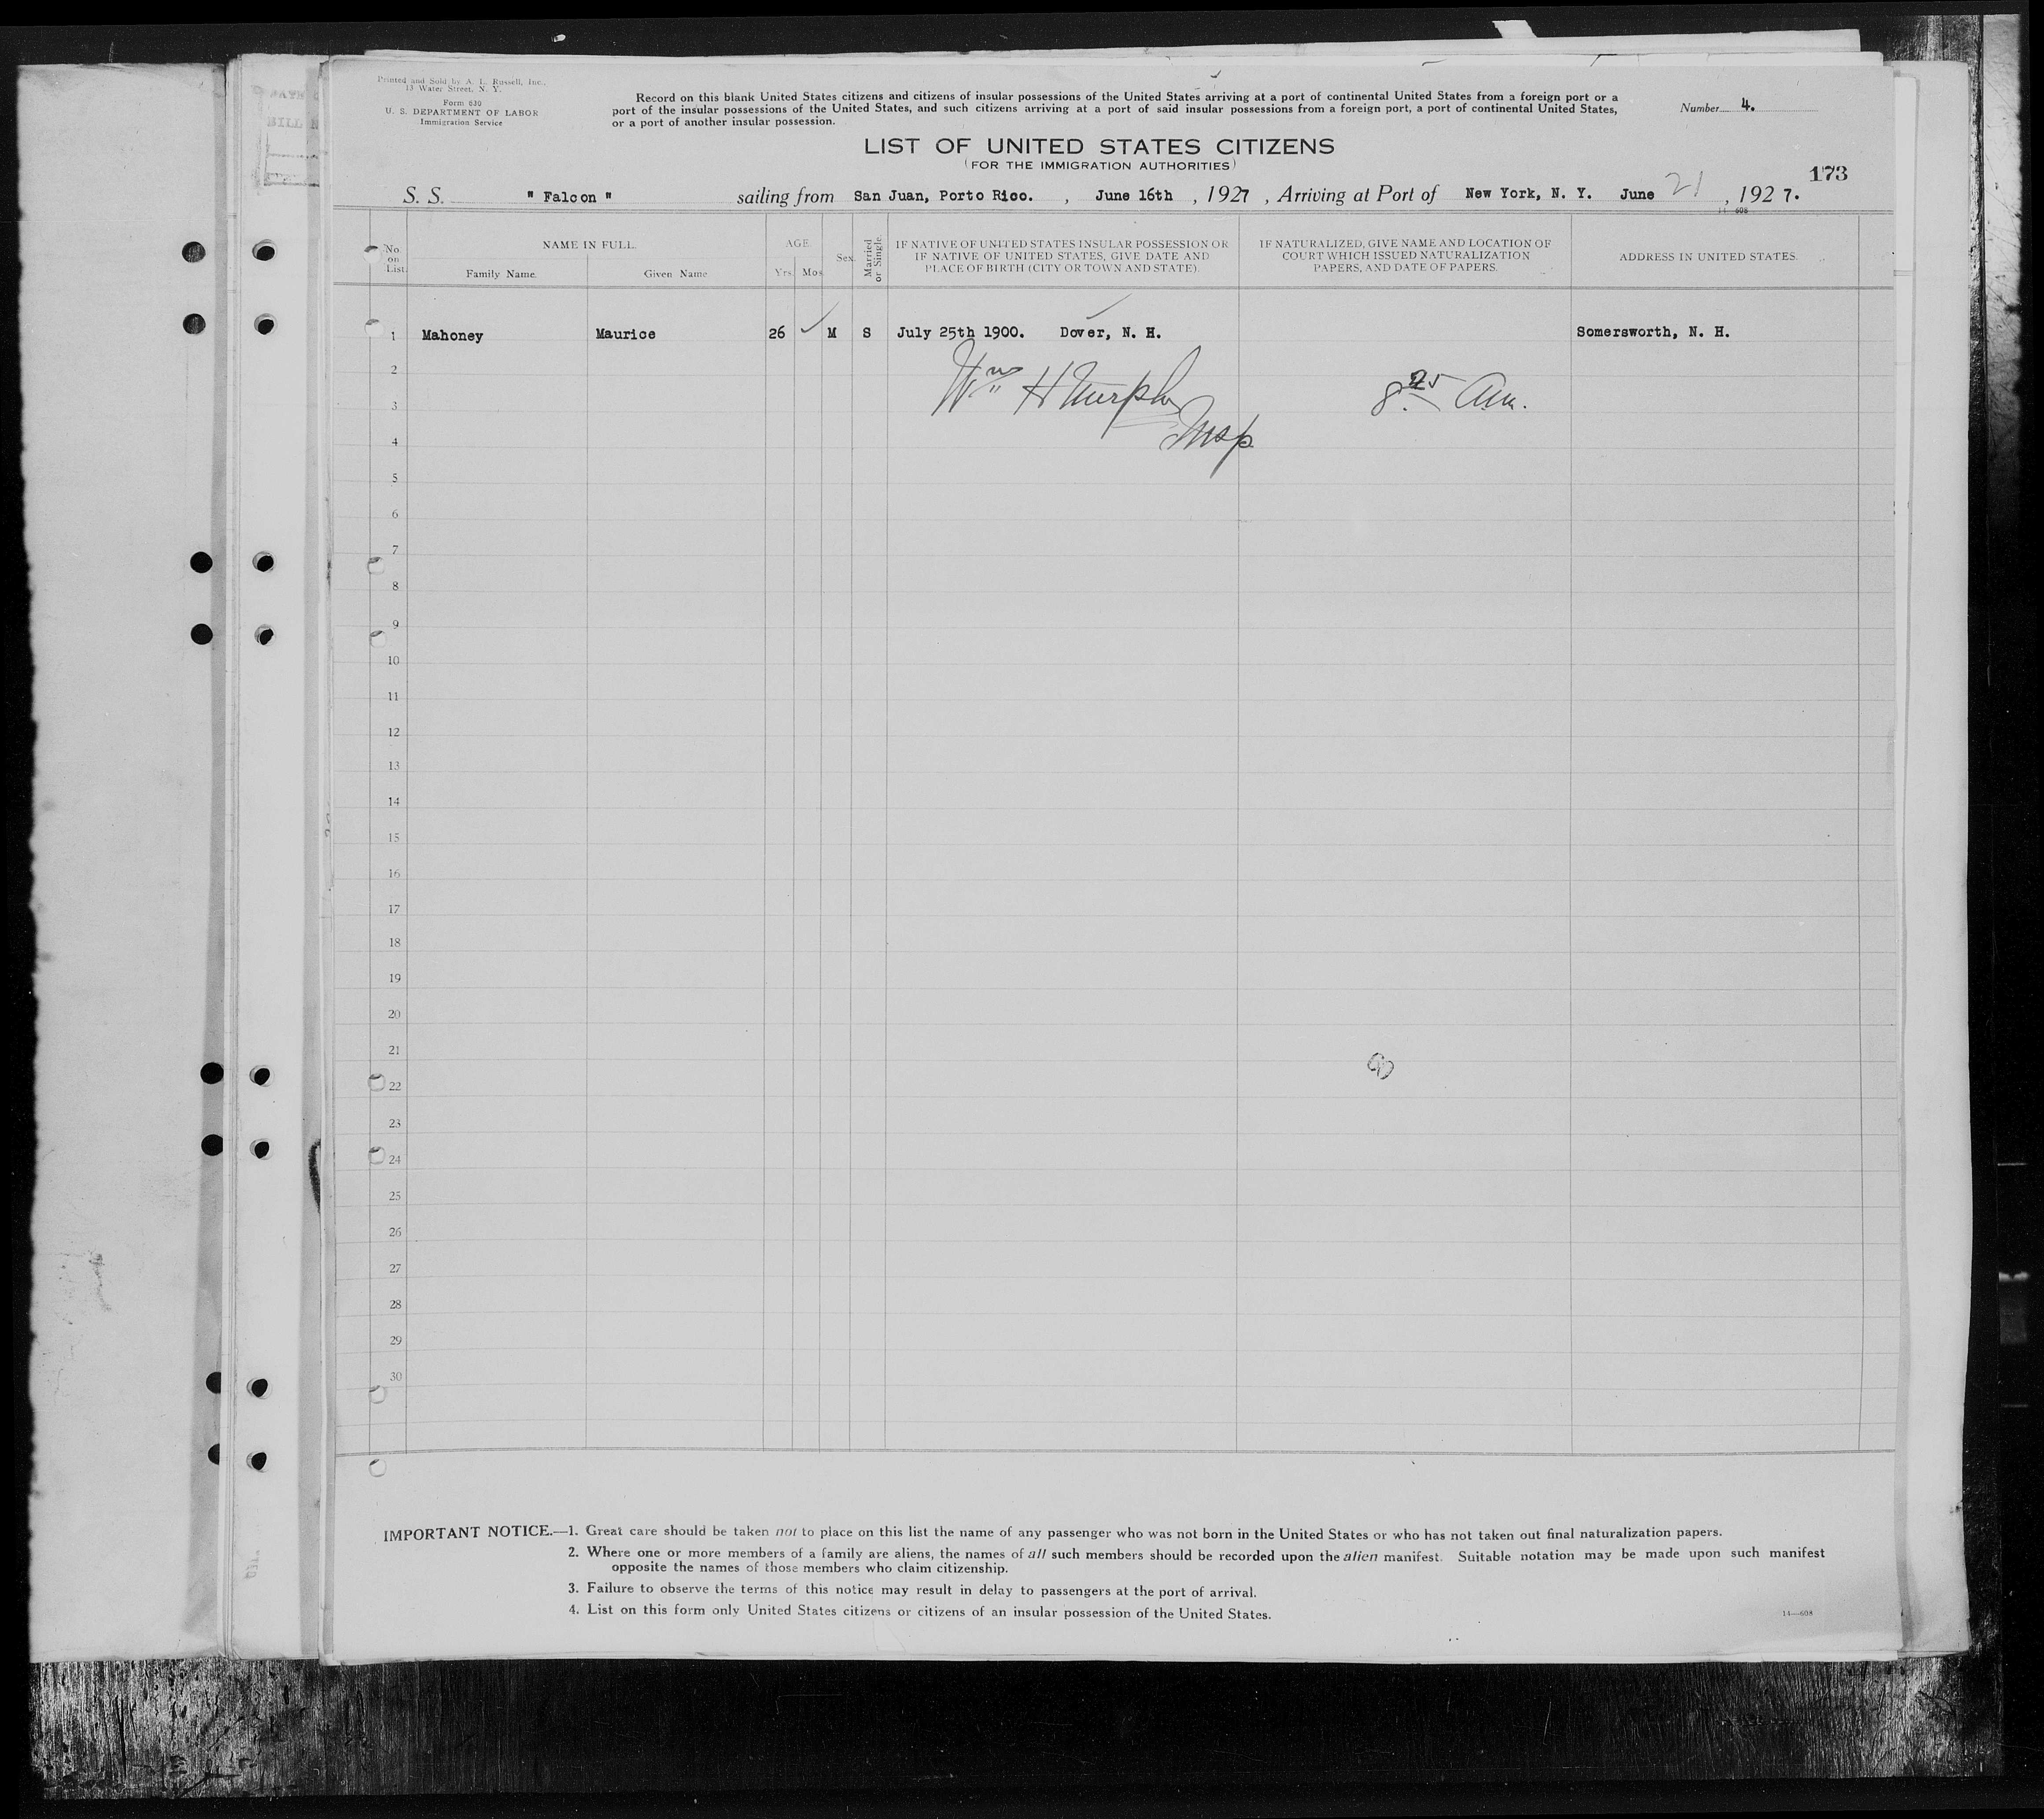 Printed and Sold by A. L. Russell, Inc.,
13 Water Street, N. Y.
Form 630
U. S. DEPARTMENT OF LABOR
Immigration Service
Record on this blank United States citizens and citizens of insular possessions of the United States arriving at a port of continental United States from a foreign port or a
port of the insular possessions of the United States, and such citizens arriving at a port of said insular possessions from a foreign port, a port of continental United States,
or a port of another insular possession.
Number 4.
LIST OF UNITED STATES CITIZENS
(FOR THE IMMIGRATION AUTHORITIES)
173
S. S. " Falcon " sailing from San Juan, Porto Rico. , June 16th , 1927 , Arriving at Port of New York, N. Y. June 21 , 1927.
14—608
No. on List.
NAME IN FULL.
Family Name. Given Name.
AGE.
Yrs. Mos.
Sex.
Married or Single.
IF NATIVE OF UNITED STATES INSULAR POSSESSION OR
IF NATIVE OF UNITED STATES, GIVE DATE AND
PLACE OF BIRTH (CITY OR TOWN AND STATE).
IF NATURALIZED, GIVE NAME AND LOCATION OF
COURT WHICH ISSUED NATURALIZATION
PAPERS, AND DATE OF PAPERS.
ADDRESS IN UNITED STATES.
1 Mahoney Maurice 26 ✓ M S July 25th 1900. Dover, N. H. Somersworth, N. H.
2
Wm H Murphy
3
8.25 Am.
4
Insp
5
6
7
8
9
10
11
12
13
14
15
16
17
18
19
20
21
22
23
24
25
26
27
28
29
30
IMPORTANT NOTICE.—1. Great care should be taken not to place on this list the name of any passenger who was not born in the United States or who has not taken out final naturalization papers.
2. Where one or more members of a family are aliens, the names of all such members should be recorded upon the alien manifest. Suitable notation may be made upon such manifest
opposite the names of those members who claim citizenship.
3. Failure to observe the terms of this notice may result in delay to passengers at the port of arrival.
4. List on this form only United States citizens or citizens of an insular possession of the United States.
14—608